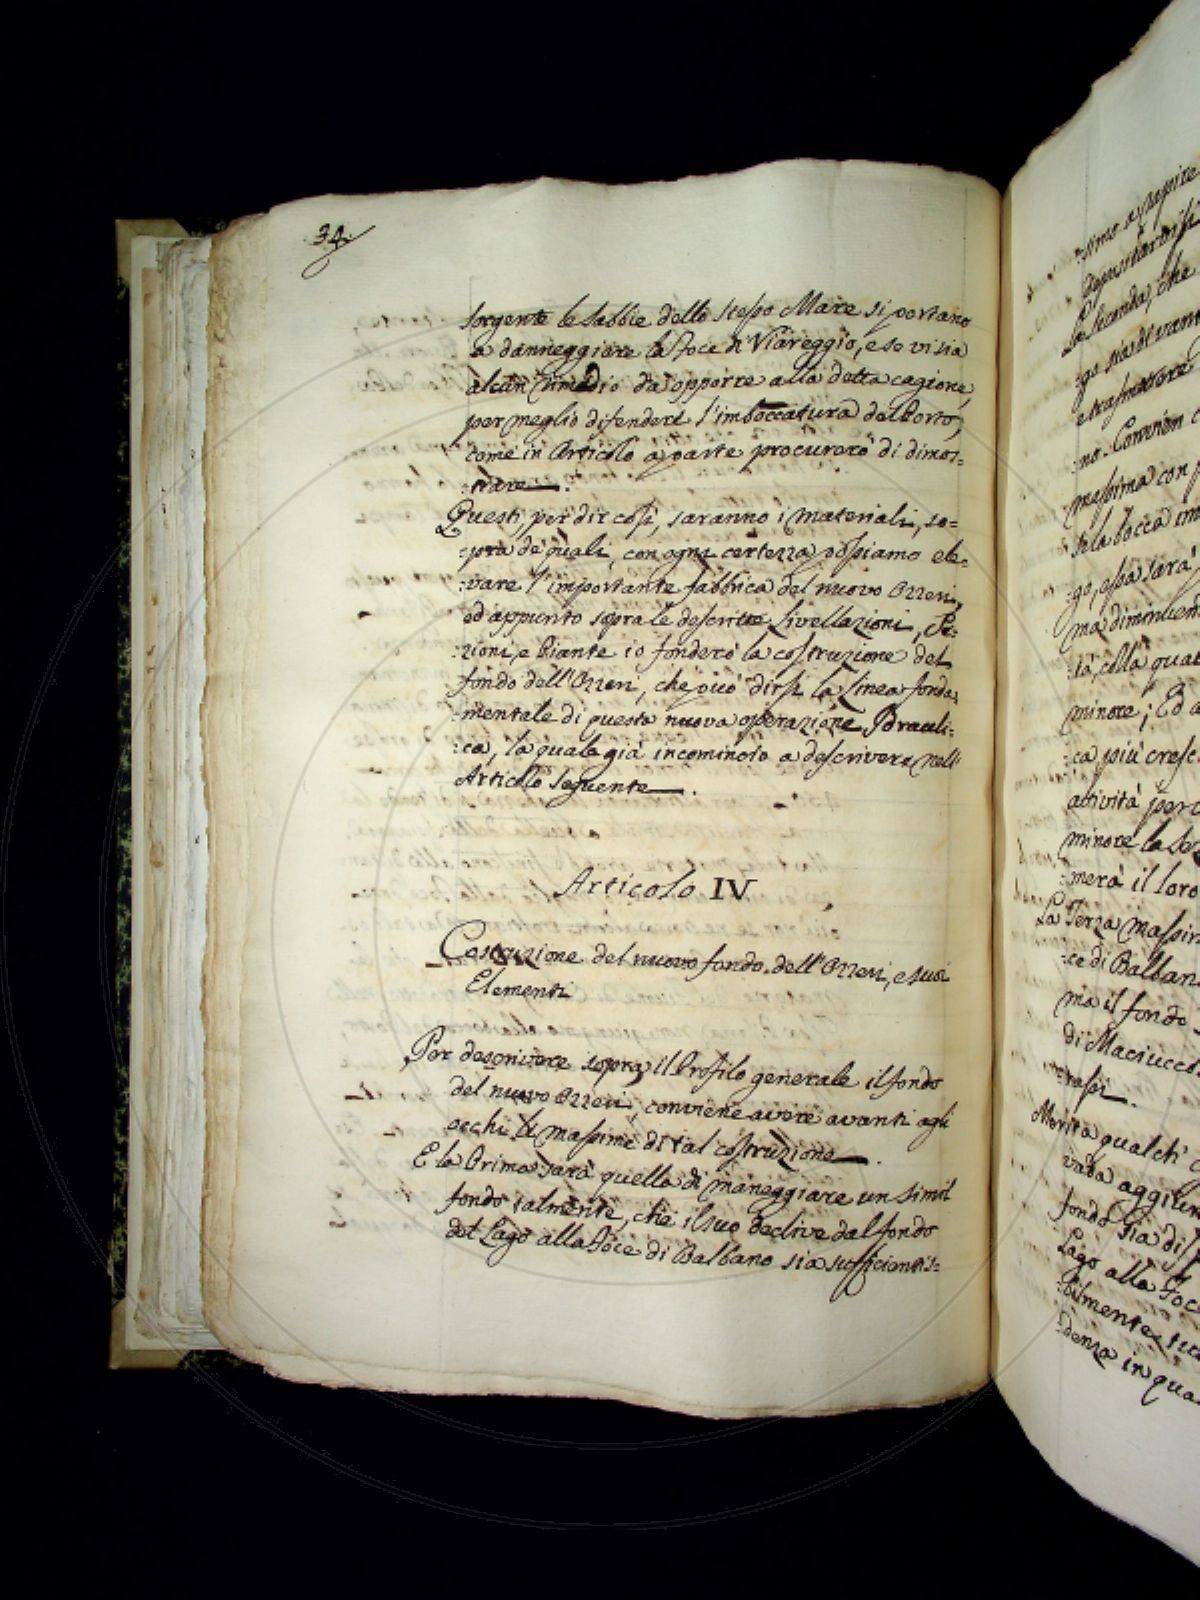 34.
sorgente le sabbie dello stesso Mare si portano
a danneggiare la Foce di Viareggio, e se vi sia
alcun rimedio da opporre alla detta cagione,
per meglio difendere l'imboccatura del Porto,
come in Articolo a parte procurerò di dimos=
:trare.
Questi, per dir così, saranno i materiali, so=
:pra de' quali, con ogni certezza possiamo ele=
:vare l'importante fabbrica del nuovo Ozzeri,
ed appunto sopra le descritte Livellazioni, Se=
:zioni, e Piante io fonderò la costruzione del
fondo dell'Ozzeri, che può dirsi la Linea fonda
:mentale di questa nuova operazione Idrauli:
:ca, la quale già incomincio a descrivere nell'
Articolo seguente.
Articolo IV
Costruzione del nuovo fondo dell'Ozzeri, e suoi
Elementi
Per descrivere sopra il Profilo generale il fondo
del nuovo Ozzeri, conviene avere avanti agli
occhi le massime di tal costruzione.
E la Prima sarà quella di maneggiare un simil
fondo talmente, che il suo declive dal fondo
del Lago alla Foce di Balbano sia sufficientis=
:simo a
La seconda, che
:go sia di
e trasmettere
:no. Convien
massima con
la bocca
:go, essa sarà
ma
:tà, colla
minore; Ed a
:ca più
attività
minore la
:merà il loro
La Terza
:ce di
ma il fondo
di
:rassi.
Merita qualch'
vada
fondo sia di
Lago alla
:bilmente
:denza in